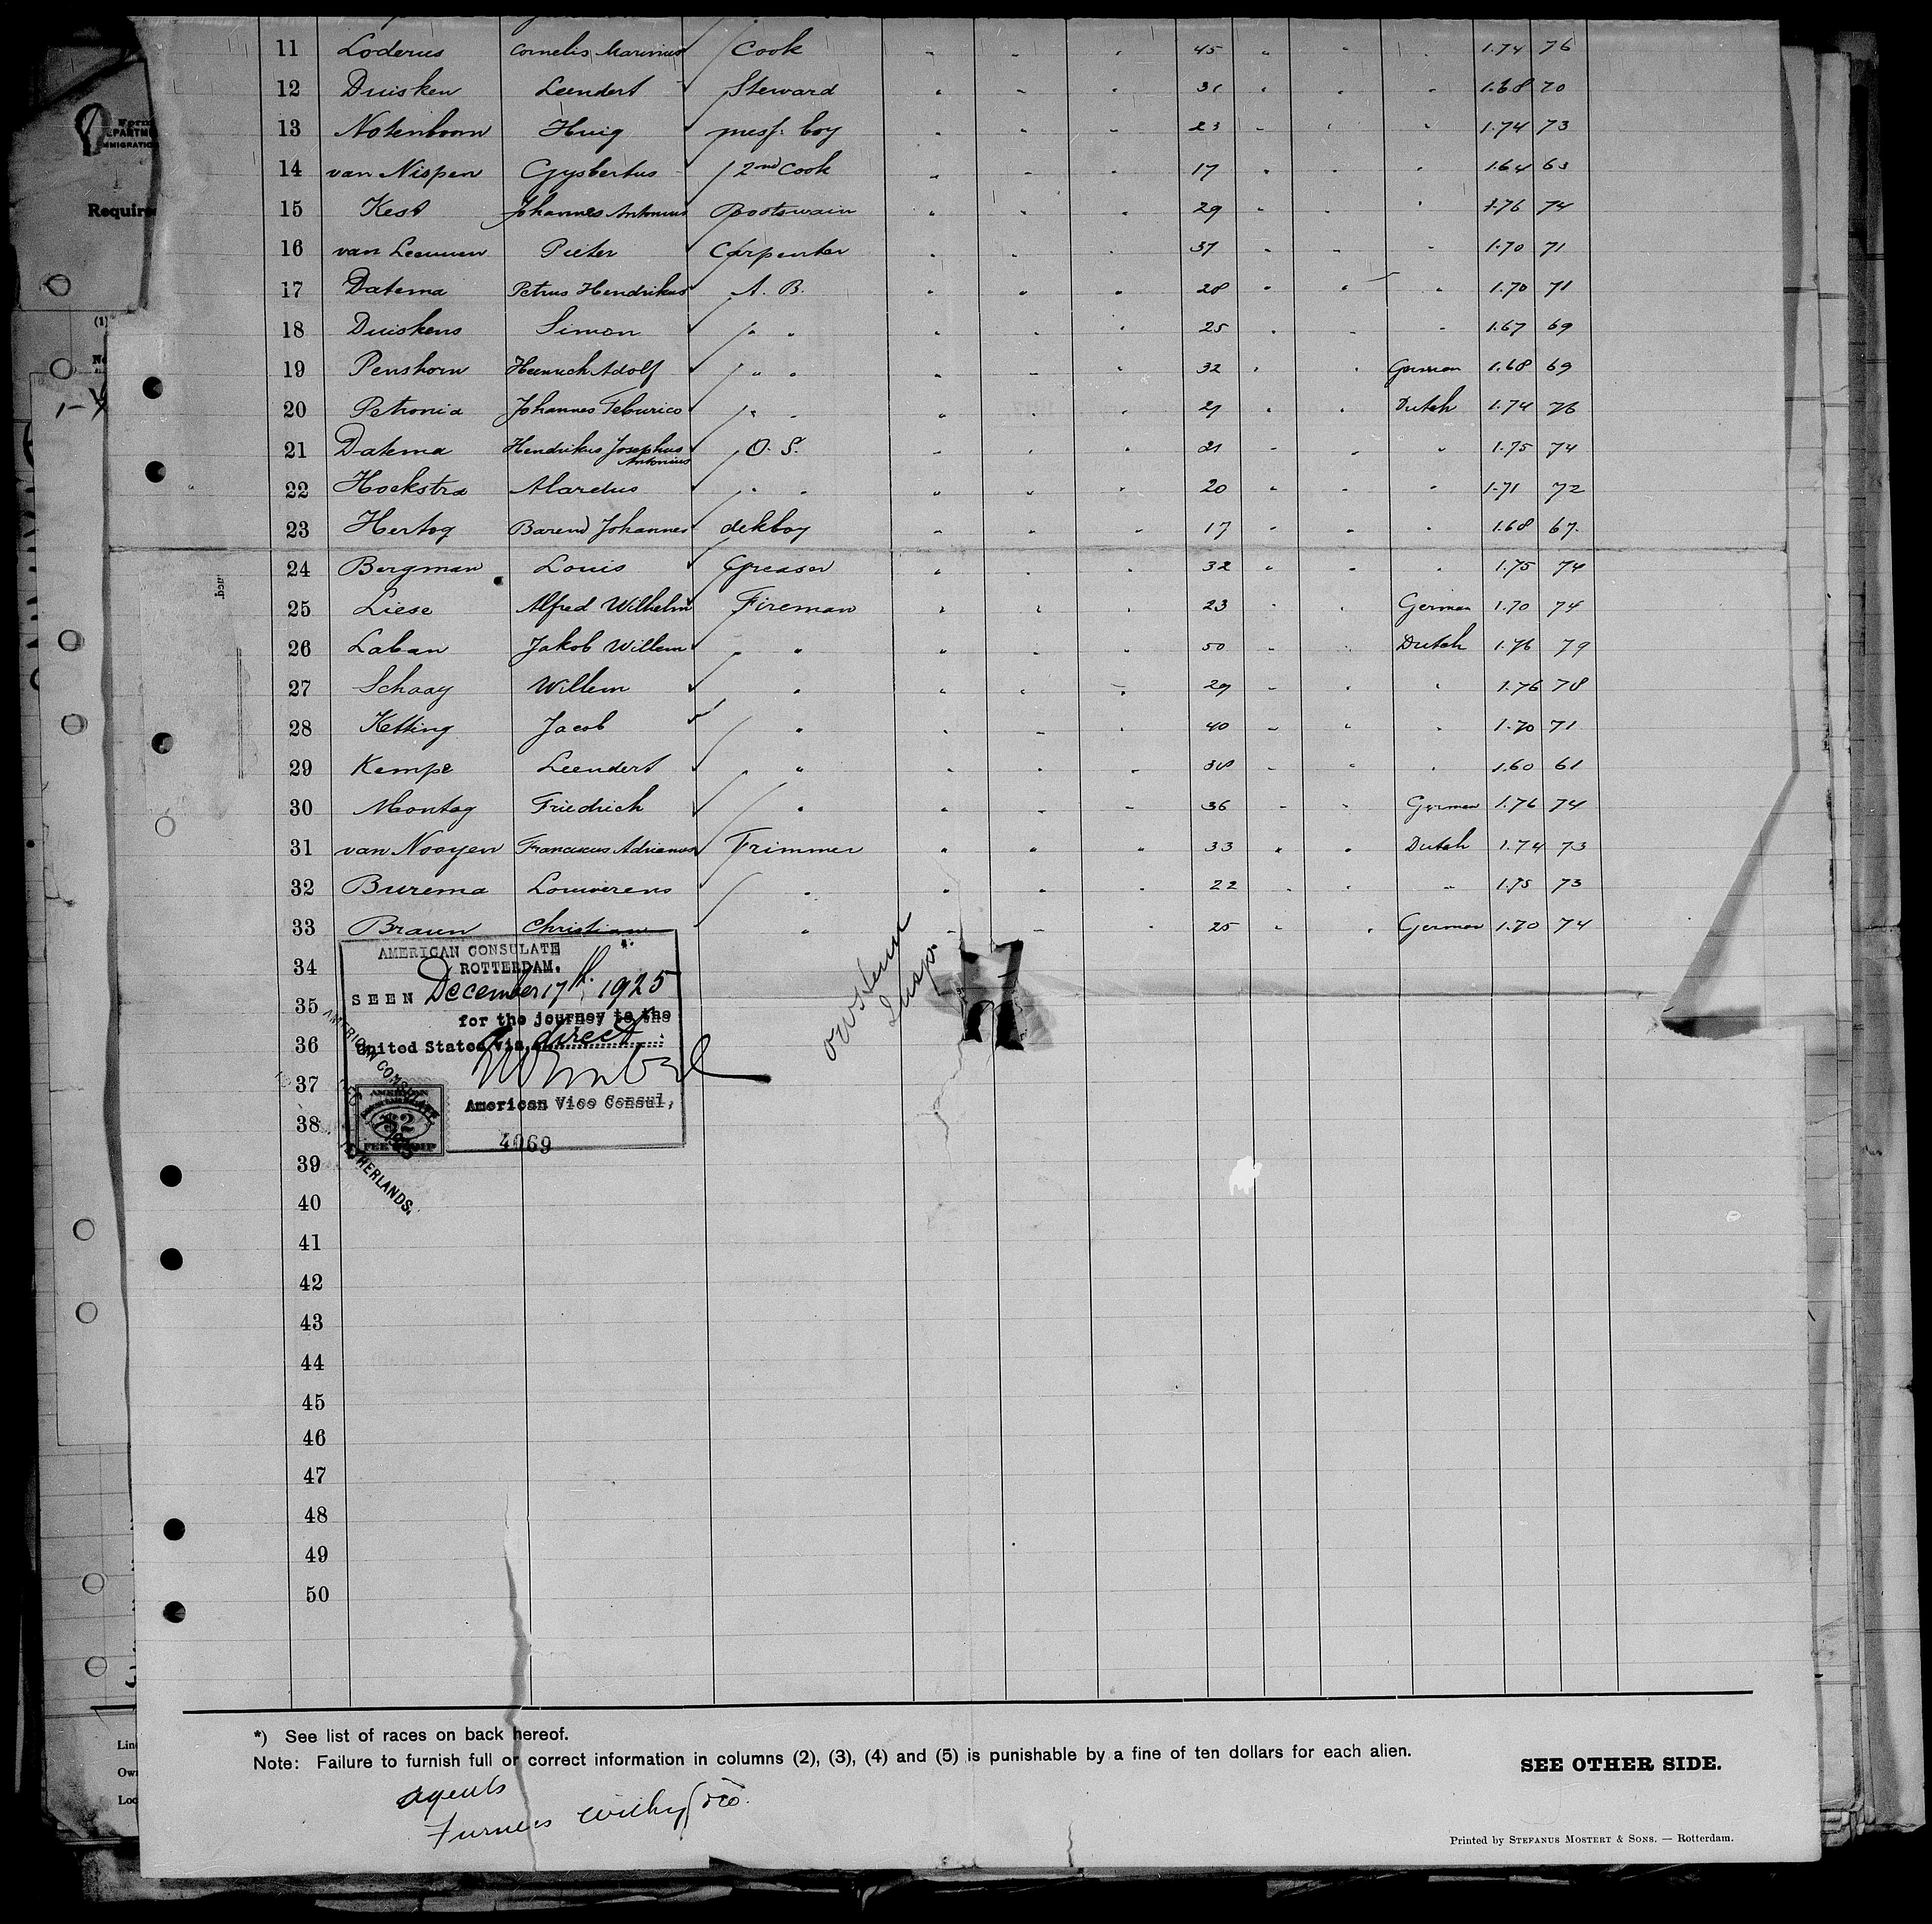 11 Loderus Cornelis Marinius Cook " " " 45 " " " 1.74 76
12 Duisken Leendert Steward " " " 31 " " " 1.68 70
13 Notenboom Huig mess boy " " " 23 " " " 1.74 73
14 van Nispen Gysbertus 2nd Cook " " " 17 " " " 1.64 63
15 Kest Johannes Antonius Bootswain " " " 29 " " " 1.76 74
16 van Leeuwen Pieter Carpenter " " " 37 " " " 1.70 71
17 Datema Petrus Hendrikus A. B. " " " 28 " " " 1.70 71
18 Duiskens Simon " " " " " 25 " " " 1.67 69
19 Penshorn Heinrich Adolf " " " " " 32 " " German 1.68 69
20 Petronia Johannes " " " " " 29 " " Dutch 1.74 76
21 Datema Hendrikus Josephus Antonius O. S. " " " 21 " " " 1.75 74
22 Hoekstra Alardus " " " " " 20 " " " 1.71 72
23 Hertog Barend Johannes dekboy " " " 17 " " " 1.68 67.
24 Bergman Louis Greaser " " " 32 " " " 1.75 74
25 Liese Alfred Wilhelm Fireman " " " 23 " " German 1.70 74
26 Laban Jakob Willem " " " " " 50 " " Dutch 1.76 79
27 Schaay Willem " " " " 29 " " " 1.76 78
28 Ketting Jacob " " " " 40 " " " 1.70 71
29 Kempe Leendert " " " " " " " 1.60 61
30 Montag Friedrich " " " " 36 " " German 1.76 74
31 van Nooyen Franciscus Adrianus Trimmer " " " 33 " " Dutch 1.74 73
32 Burema Louwerens " " " " 22 " " " 1.75 73
33 Braun Christian " " " " 25 " " German 1.70 74
34
35
36
37
38
39
40
41
42
43
44
45
46
47
48
49
50
AMERICAN CONSULATE
ROTTERDAM.
SEEN December 17th 1925
for the journey to the
United States via direct
American Vice Consul,
4069
AMERICAN CONSULATE
NETHERLANDS.
AMERICAN
$2
FEE STAMP
Insp
*) See list of races on back hereof.
Note: Failure to furnish full or correct information in columns (2), (3), (4) and (5) is punishable by a fine of ten dollars for each alien.
SEE OTHER SIDE.
agents
Furness Withy & Co.
Printed by STEFANUS MOSTERT & SONS. — Rotterdam.
Form
Require
(1)
Lin
Own
Loc